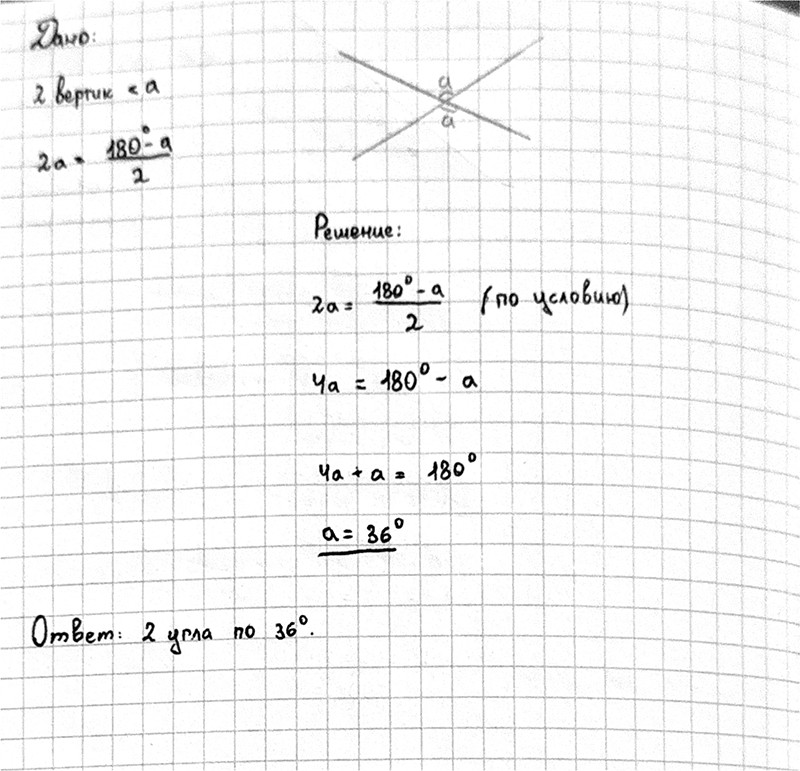 Дано:
2 вертик ∠ a
2a = (180° - a)/2
a
a
Решение:
2a = (180° - a)/2 (по условию)
4a = 180° - a
4a + a = 180°
a = 36°
Ответ: 2 угла по 36°.